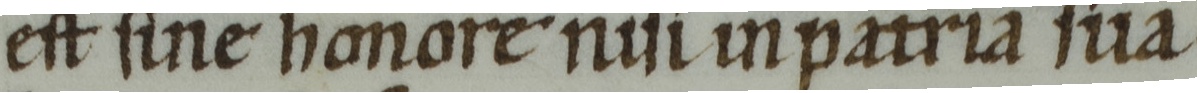 est sine honore nisi in patria sua